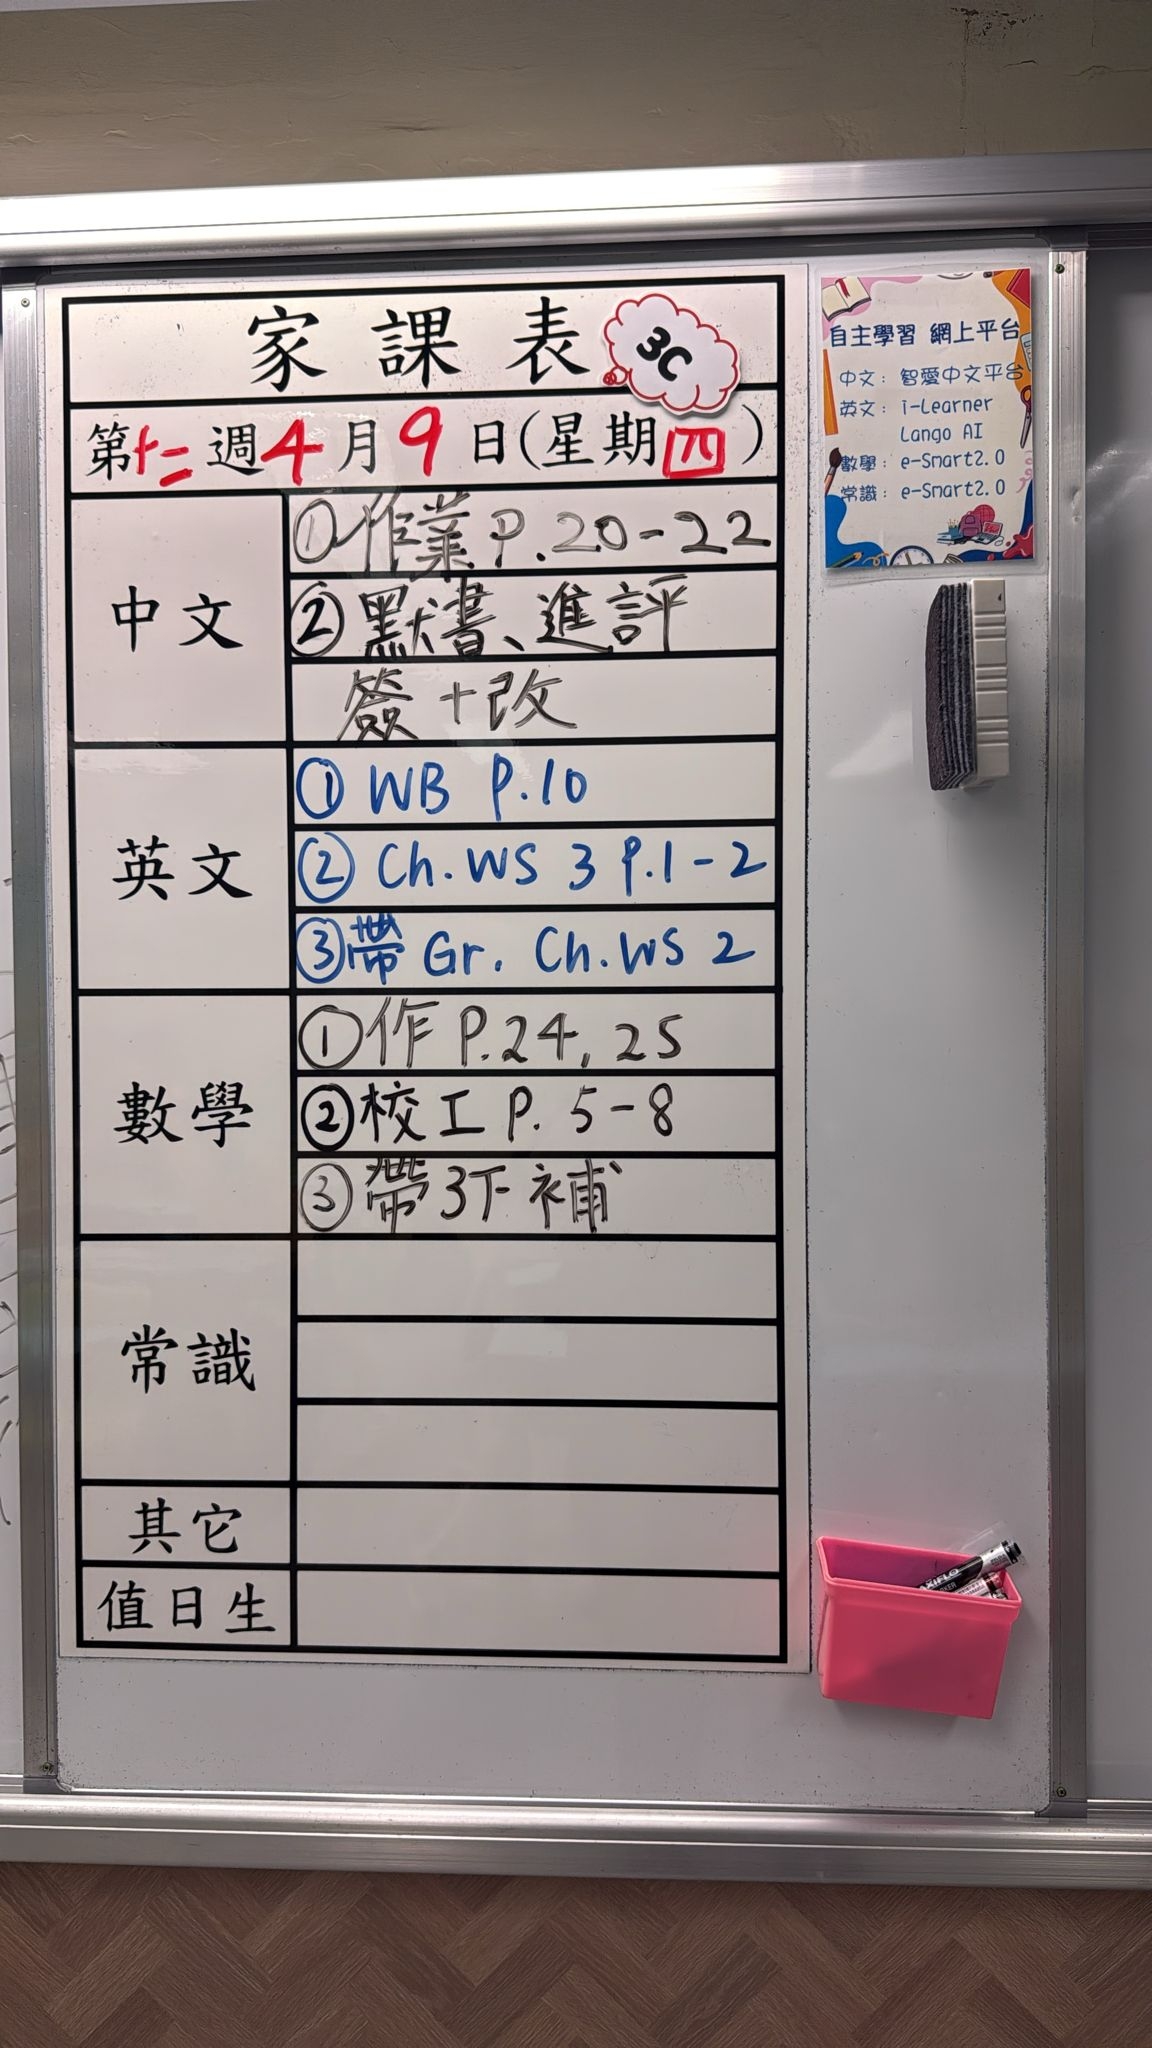 家課表
3C
第十二週4月9日(星期四)
中文
①作業 P.20-22
②默書、進評
簽+改
英文
① WB P.10
② Ch.WS 3 P.1-2
③帶 Gr. Ch.WS 2
數學
①作 P.24, 25
②校工 P. 5-8
③帶 3下 補
常識
其它
值日生
自主學習 網上平台
中文：智愛中文平台
英文：i-Learner
Lango AI
數學：e-Smart2.0
常識：e-Smart2.0